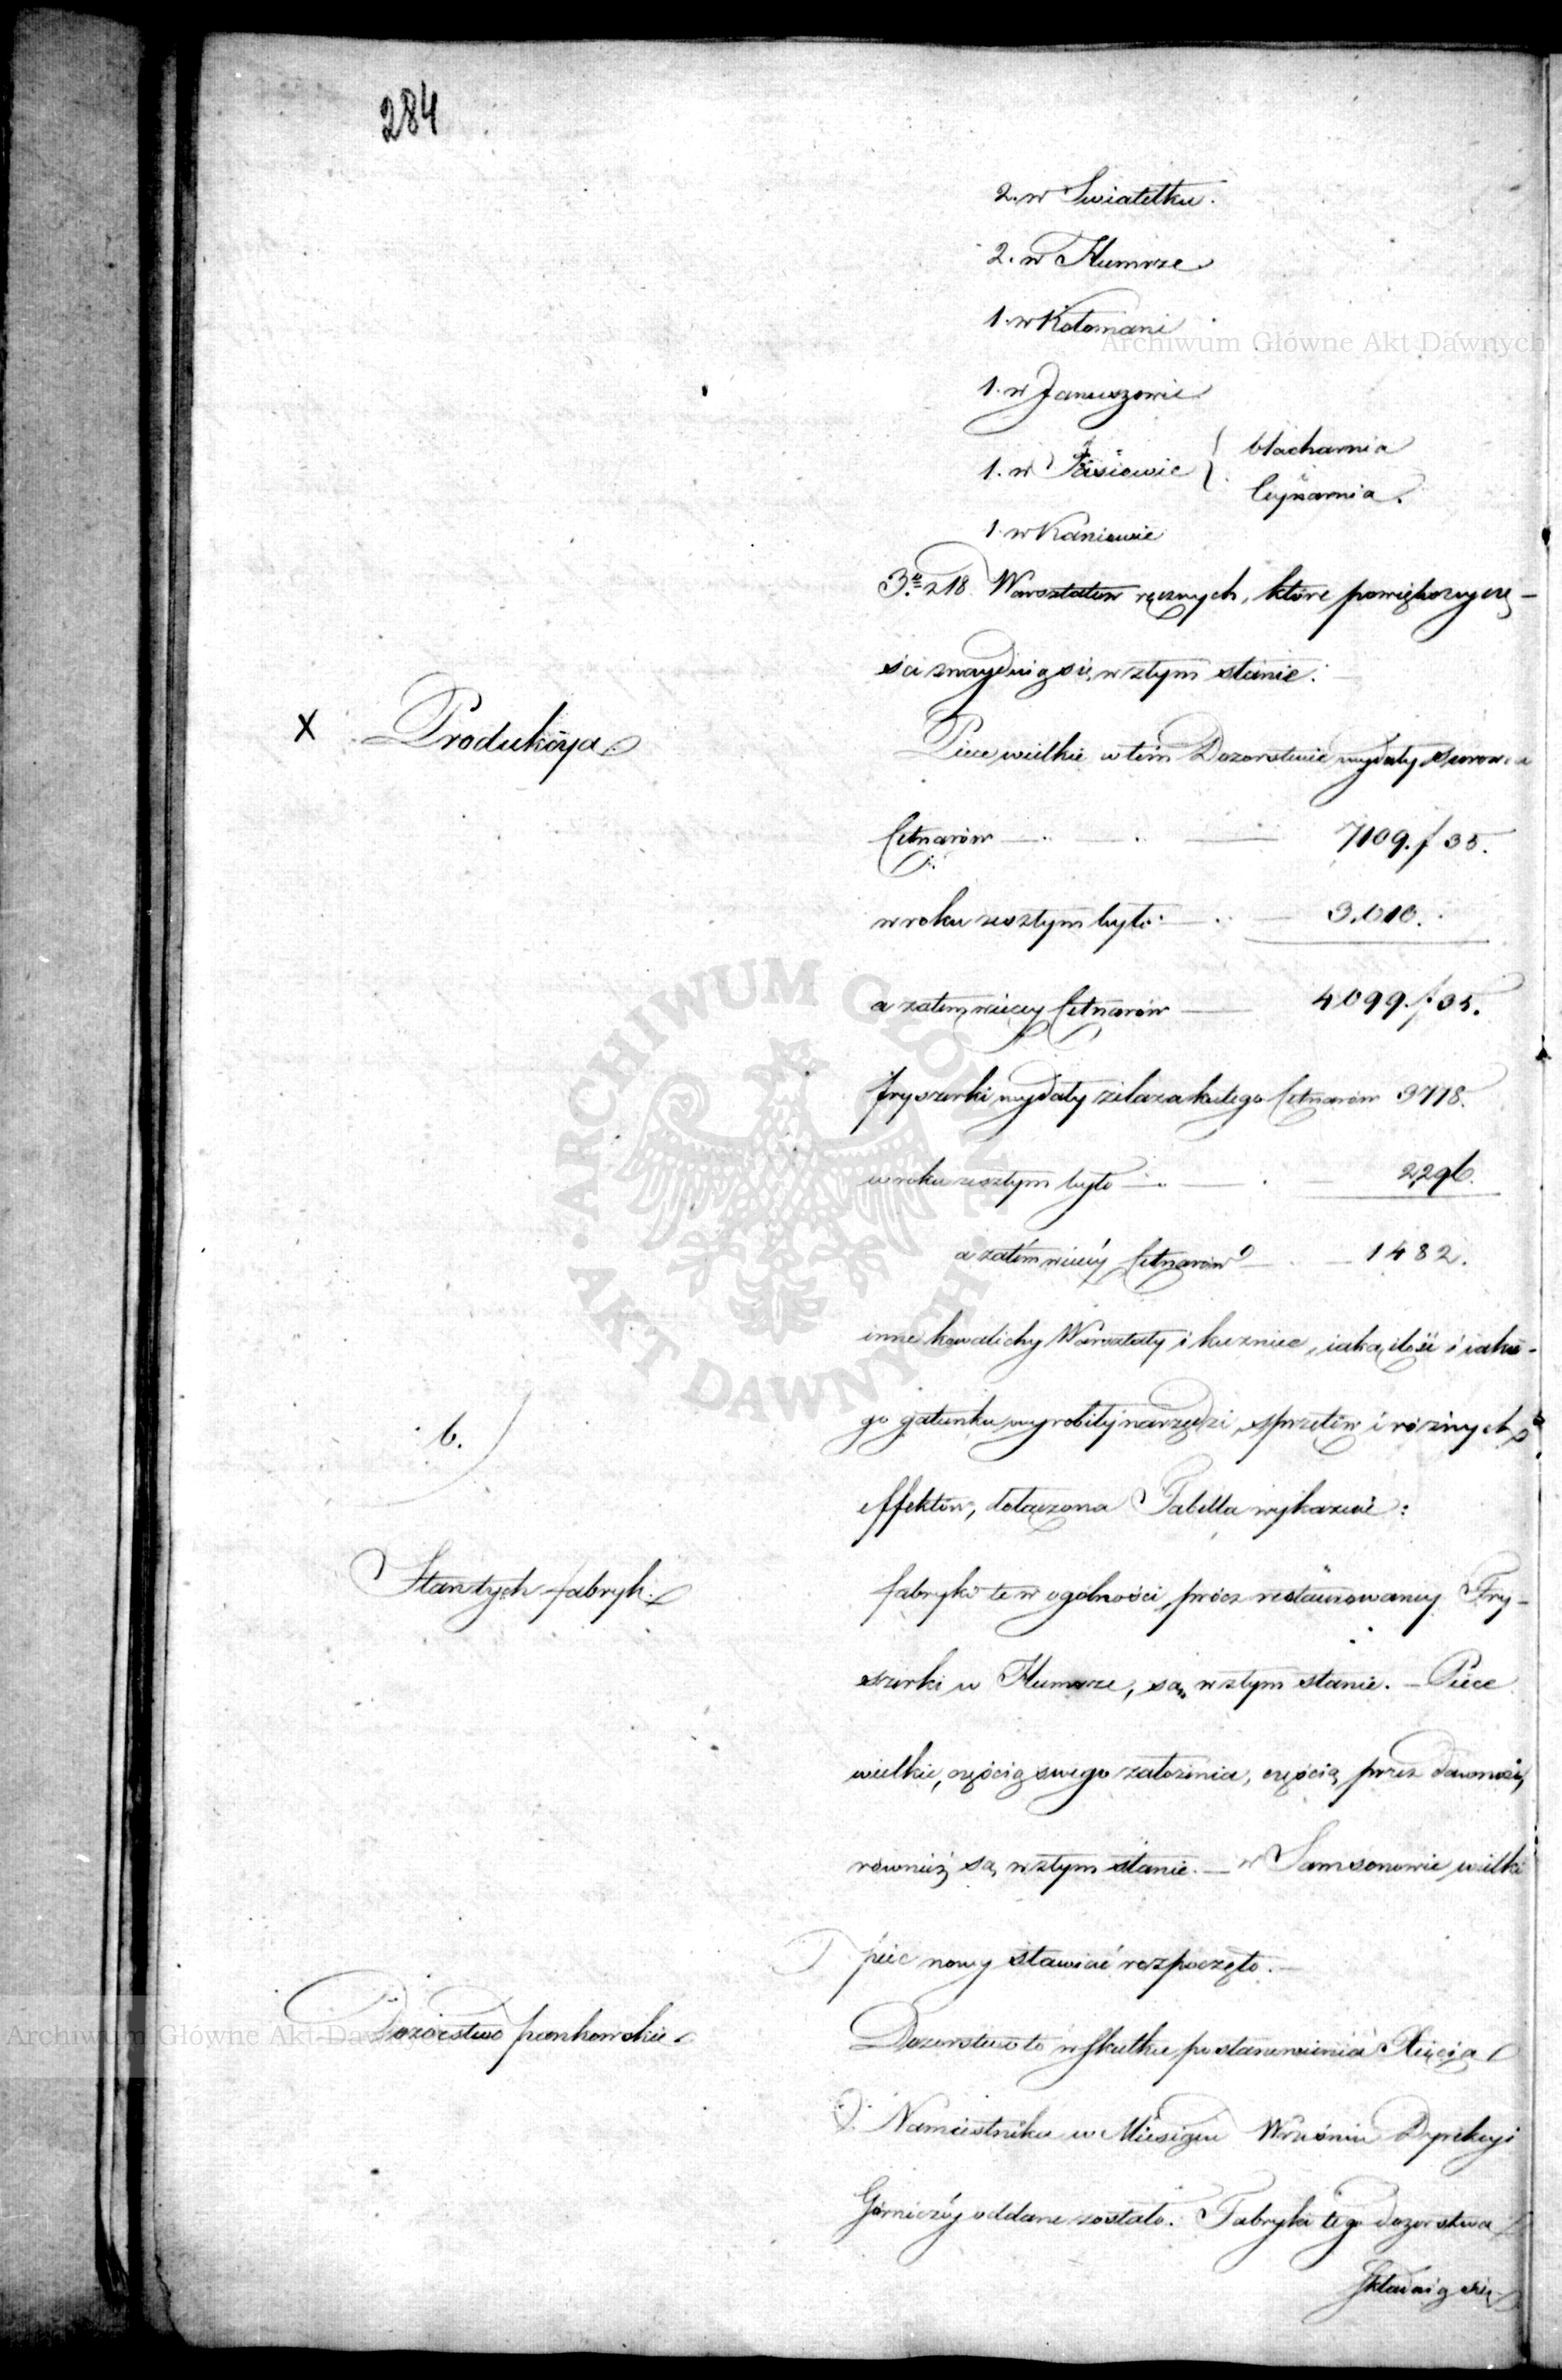 284
2. w Swiatełku.
2. w Humrze
1. w Kołomani
1. w Januszowie
1. w Jasiowie { blacharnia
Cynarnia.
1. w Kaniowie
3º z 18 Warsztatów ręcznych, które powiększey czę-
ści znayduią się w złym stanie.
X Produkcya
Piece wielkie w tém Dozorstwie wydały surowca
Cetnarów 7109. f 35.
w roku zeszłym było 3.010.
a zatem więcey Cetnarów 4099. f. 35.
fryszerki wydały żelaza kutego Cetnarów 3778.
w roku zeszłym było 2296.
a zatém więcéy Cetnarów 1482.
inne kowalichy Warsztaty i kuznice, iaką ilość i iakie-
b.
go gatunku wyrobiły narzędzi, sprzętów i różnych
effektów, dołączona Tabella wykazuie:
Stan tych fabryk.
fabryki te w ogólności prócz restaurowaney Fry-
szerki w Humrze, są w złym stanie. – Piece
wielkie, częścią swego założenia, częścią przez dawność,
również są w złym stanie. – w Samsonowie wielki
piec nowy stawiać rozpoczęto. –
Dozorstwo pankowskie
Dozorstwo to w skutku postanowienia Xięcia
Namiestnika w Miesiącu Wrześniu Dyrekcyi
Górniczéy oddane zostało. Fabryki tego dozorstwa
składaią się
Archiwum Główne Akt Dawnych
ARCHIWUM GŁÓWNE AKT DAWNYCH
Archiwum Główne Akt Dawnych